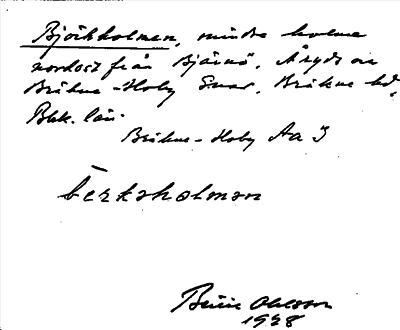 Björkholmen, mindre holme
nordost från Björnö. Åryds av
Bräkne-Hoby Snar. Bräkne hd,
Blek. län.
Bräkne-Hoby Aa 3
bērkaholman
Ohlsson
1928